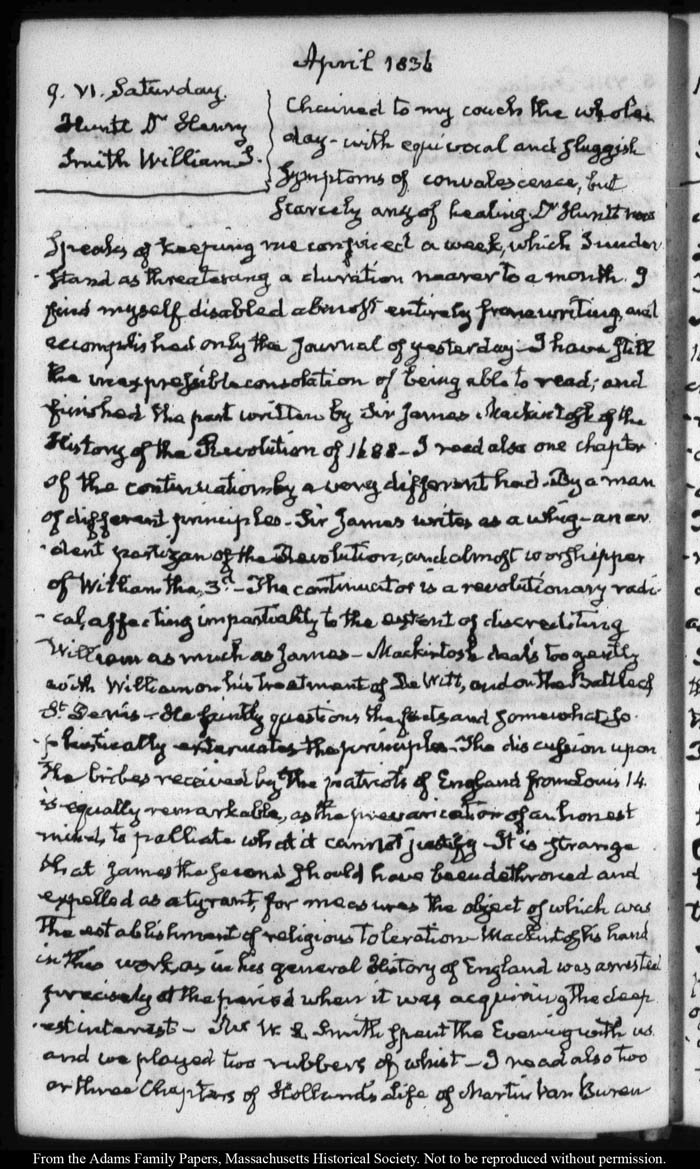 April 1836
9. VI. Saturday.
Huntt Dr Henry
Smith William S.
Chained to my couch the whole
day - with equivocal and sluggish
symptoms of convalescence, but
scarcely any of healing. Dr Huntt now
speaks of keeping me confined a week, which I under
stand as threatening a duration nearer to a month. I
find myself disabled almost entirely from writing, and
accomplished only the journal of yesterday - I have still
the inexpressible consolation of being able to read; and
finished the part written by Sir James Mackintosh of the
History of the Revolution of 1688 - I read also one chapter
of the continuation by a very different hand - By a man
of different principles - Sir James writes as a whig - an ar
dent partizan of the Revolution, and almost worshipper
of William the 3d. - The continuator is a revolutionary radi-
-cal, affecting impartiality to the extent of discrediting
William as much as James - Mackintosh deals too gently
with William on his treatment of De Witt, and on the Battle of
St Denis - He faintly questions the facts and somewhat so-
-phistically extenuates the principles - The discussion upon
the bribes received by the patriots of England from Louis 14
is equally remarkable, as the prevarication of an honest
mind, to palliate what it cannot justify - It is strange
that James the second should have been dethroned and
expelled as a tyrant, for measures the object of which was
the establishment of religious toleration - Mackintosh's hand
in this work, as in his general History of England was arrested
precisely at the period when it was acquiring the deep
-est interest - Mr W. S. Smith spent the Evening with us
and we played two rubbers of whist - I read also two
or three Chapters of Holland's Life of Martin Van Buren
From the Adams Family Papers, Massachusetts Historical Society. Not to be reproduced without permission.